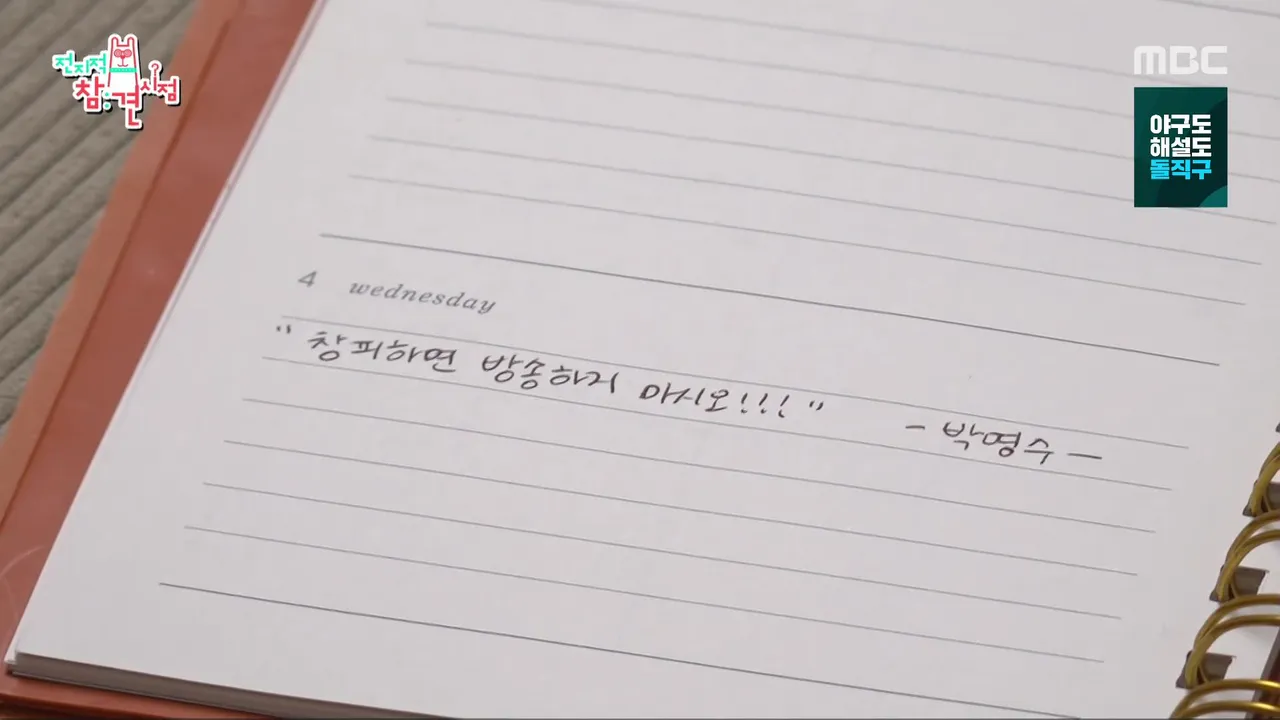 전지적
참견
시점
MBC
야구도
해설도
돌직구
4 wednesday
"창피하면 방송하지 마시오!!!" - 박명수 -